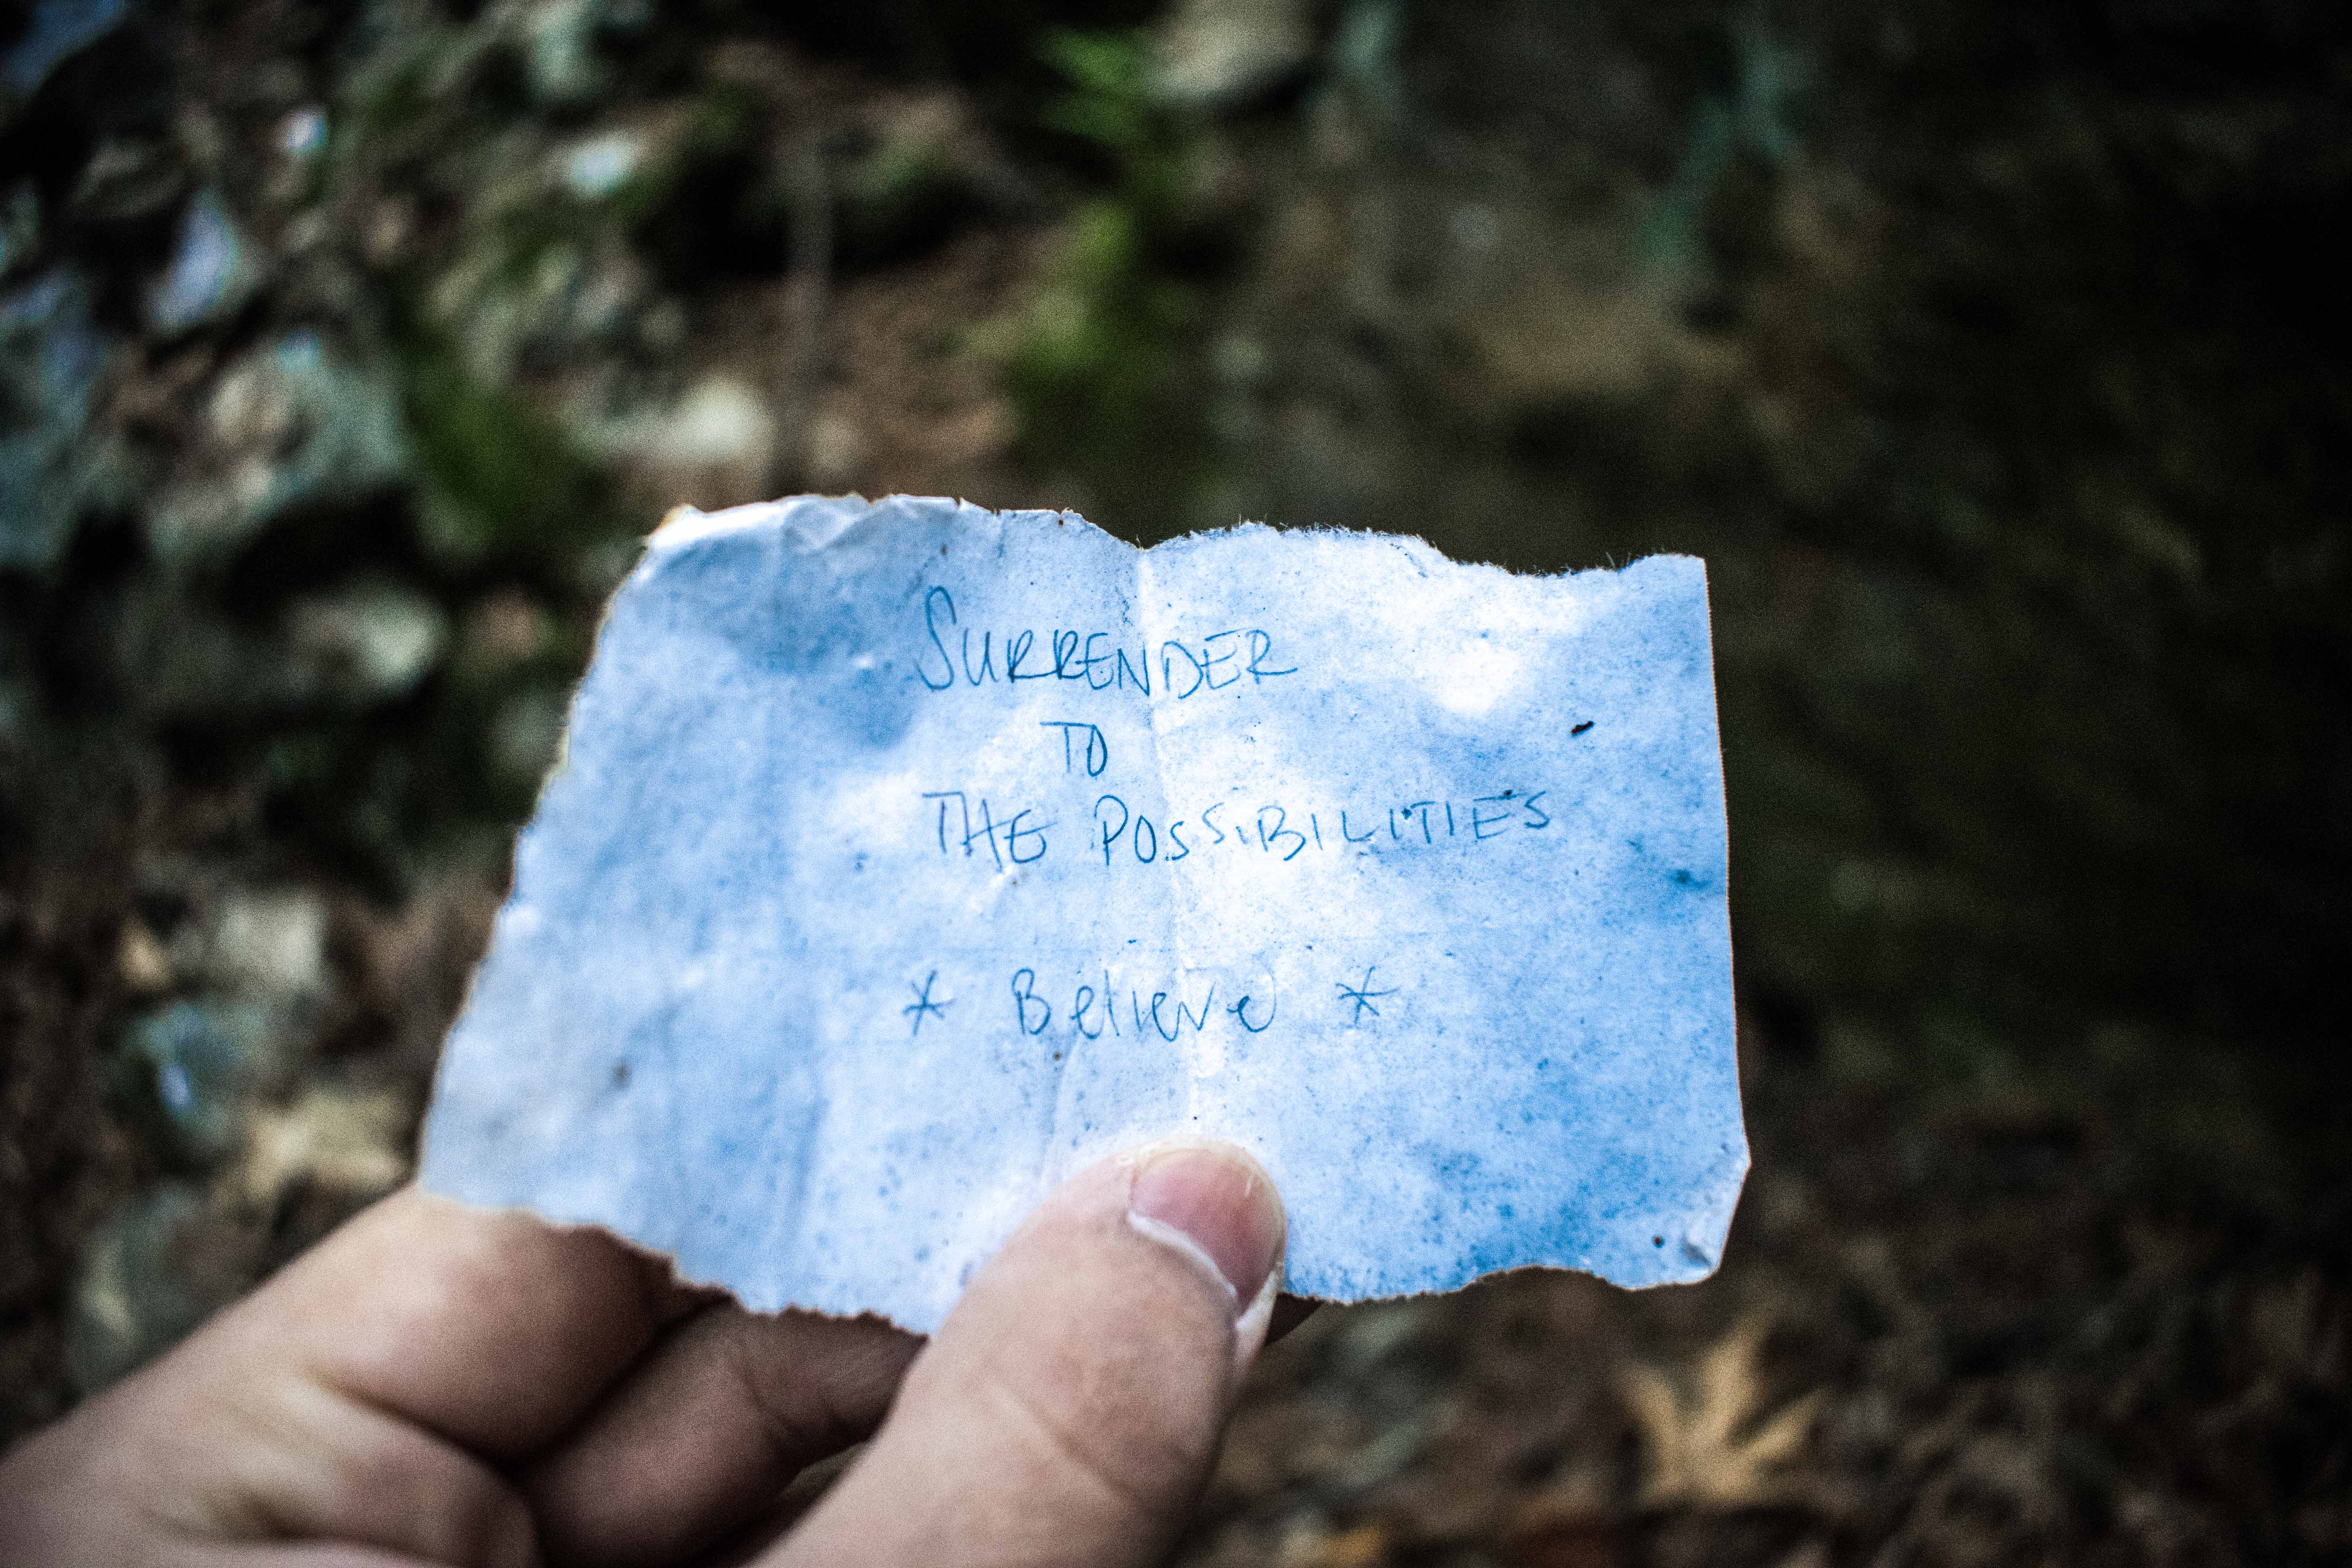 SURRENDER
TO
THE POSSIBILITIES
* Believe *